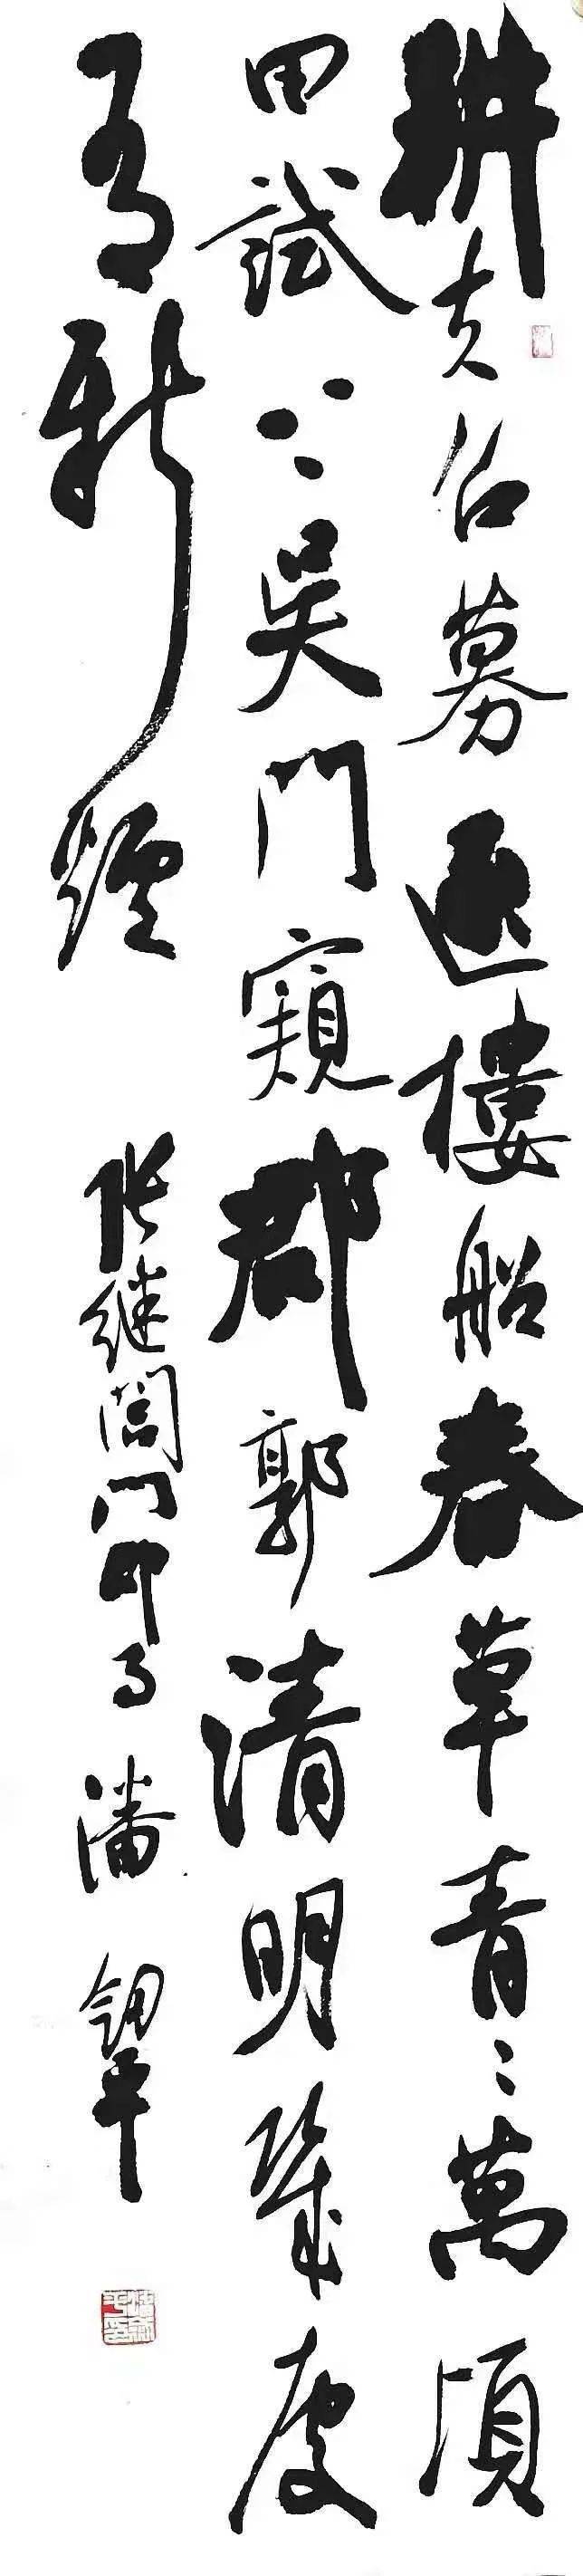 耕夫召募逐樓船春草青々萬頃
田試上吴門窺郡郭清明幾處
有新煙
張继閶門即事 潘 平